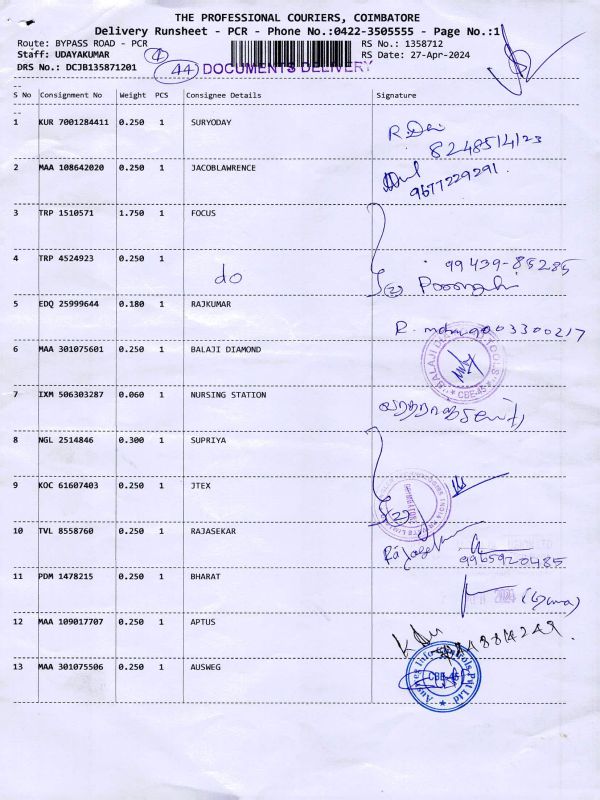 THE PROFESSIONAL COURIERS, COIMBATORE
Delivery Runsheet - PCR - Phone No.:0422-3505555 - Page No.:1
Route: BYPASS ROAD - PCR
RS No.: 1358712
Staff: UDAYAKUMAR
4
RS Date: 27-Apr-2024
DRS No.: DCJB135871201
44
DOCUMENTS DELIVERY
S No Consignment No Weight PCS Consignee Details Signature
1 KUR 7001284411 0.250 1 SURYODAY
8248514123
2 MAA 108642020 0.250 1 JACOBLAWRENCE
9677229291
3 TRP 1510571 1.750 1 FOCUS
4 TRP 4524923 0.250 1
do
99439-85285
(2)
5 EDQ 25999644 0.180 1 RAJKUMAR
9003300217
6 MAA 301075601 0.250 1 BALAJI DIAMOND
BALAJI DIAMOND TOOLS
CBE-45
7 IXM 506303287 0.060 1 NURSING STATION
8 NGL 2514846 0.300 1 SUPRIYA
9 KOC 61607403 0.250 1 JTEX
(2)
10 TVL 8558760 0.250 1 RAJASEKAR
9965920485
11 PDM 1478215 0.250 1 BHARAT
12 MAA 109017707 0.250 1 APTUS
13 MAA 301075506 0.250 1 AUSWEG
CBE-45